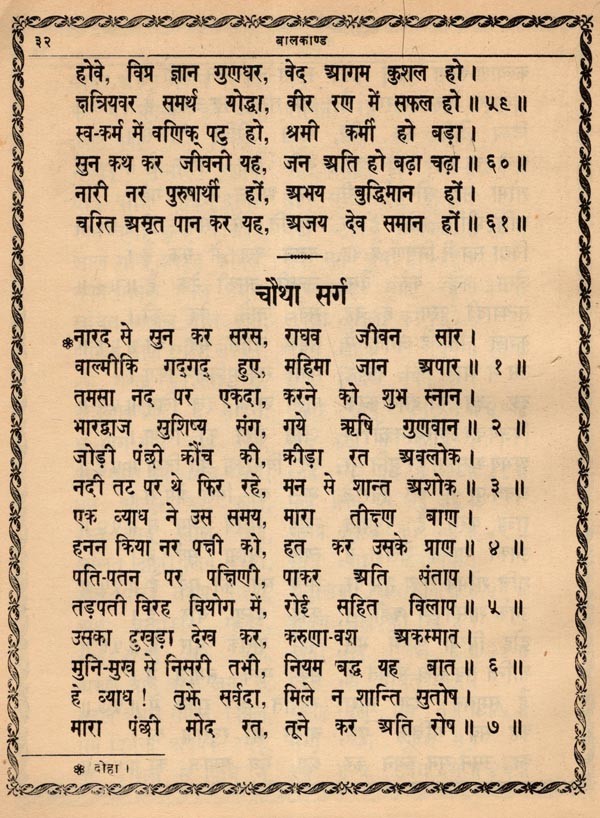 ३२ बालकाण्ड
होवे, विप्र ज्ञान गुणधर, वेद आगम कुशल हो।
क्षत्रियवर समर्थ योद्धा, वीर रण में सफल हो॥ ५९॥
स्व-कर्म में वणिक् पटु हो, श्रमी कर्मी हो बड़ा।
सुन कथ कर जीवनी यह, जन अति हो बढ़ा चढ़ा॥ ६०॥
नारी नर पुरुषार्थी हों, अभय बुद्धिमान हों।
चरित अमृत पान कर यह, अजय देव समान हों॥ ६१॥
चौथा सर्ग
❋नारद से सुन कर सरस, राघव जीवन सार।
वाल्मीकि गद्गद् हुए, महिमा जान अपार॥ १॥
तमसा नद पर एकदा, करने को शुभ स्नान।
भारद्वाज सुशिष्य संग, गये ऋषि गुणवान॥ २॥
जोड़ी पंछी क्रौंच की, क्रीड़ा रत अवलोक।
नदी तट पर थे फिर रहे, मन से शान्त अशोक॥ ३॥
एक व्याध ने उस समय, मारा तीक्ष्ण बाण।
हनन किया नर पक्षी को, हत कर उसके प्राण॥ ४॥
पति-पतन पर पक्षिणी, पाकर अति संताप।
तड़पती विरह वियोग में, रोई सहित विलाप॥ ५॥
उसका दुखड़ा देख कर, करुणा-वश अकस्मात्।
मुनि-मुख से निसरी तभी, नियम बद्ध यह बात॥ ६॥
हे व्याध! तुझे सर्वदा, मिले न शान्ति सुतोष।
मारा पंछी मोद रत, तूने कर अति रोष॥ ७॥
❋ दोहा।